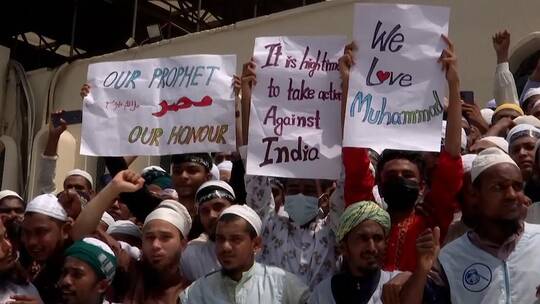 OUR PROPHET
محمد
OUR HONOUR
It is high time
to take action
Against
India
We
Love
Muhammad